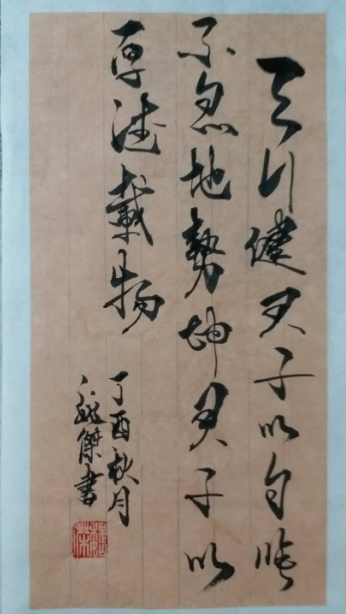 天行健君子以自强
不息地势坤君子以
厚德载物
丁酉秋月
傑書